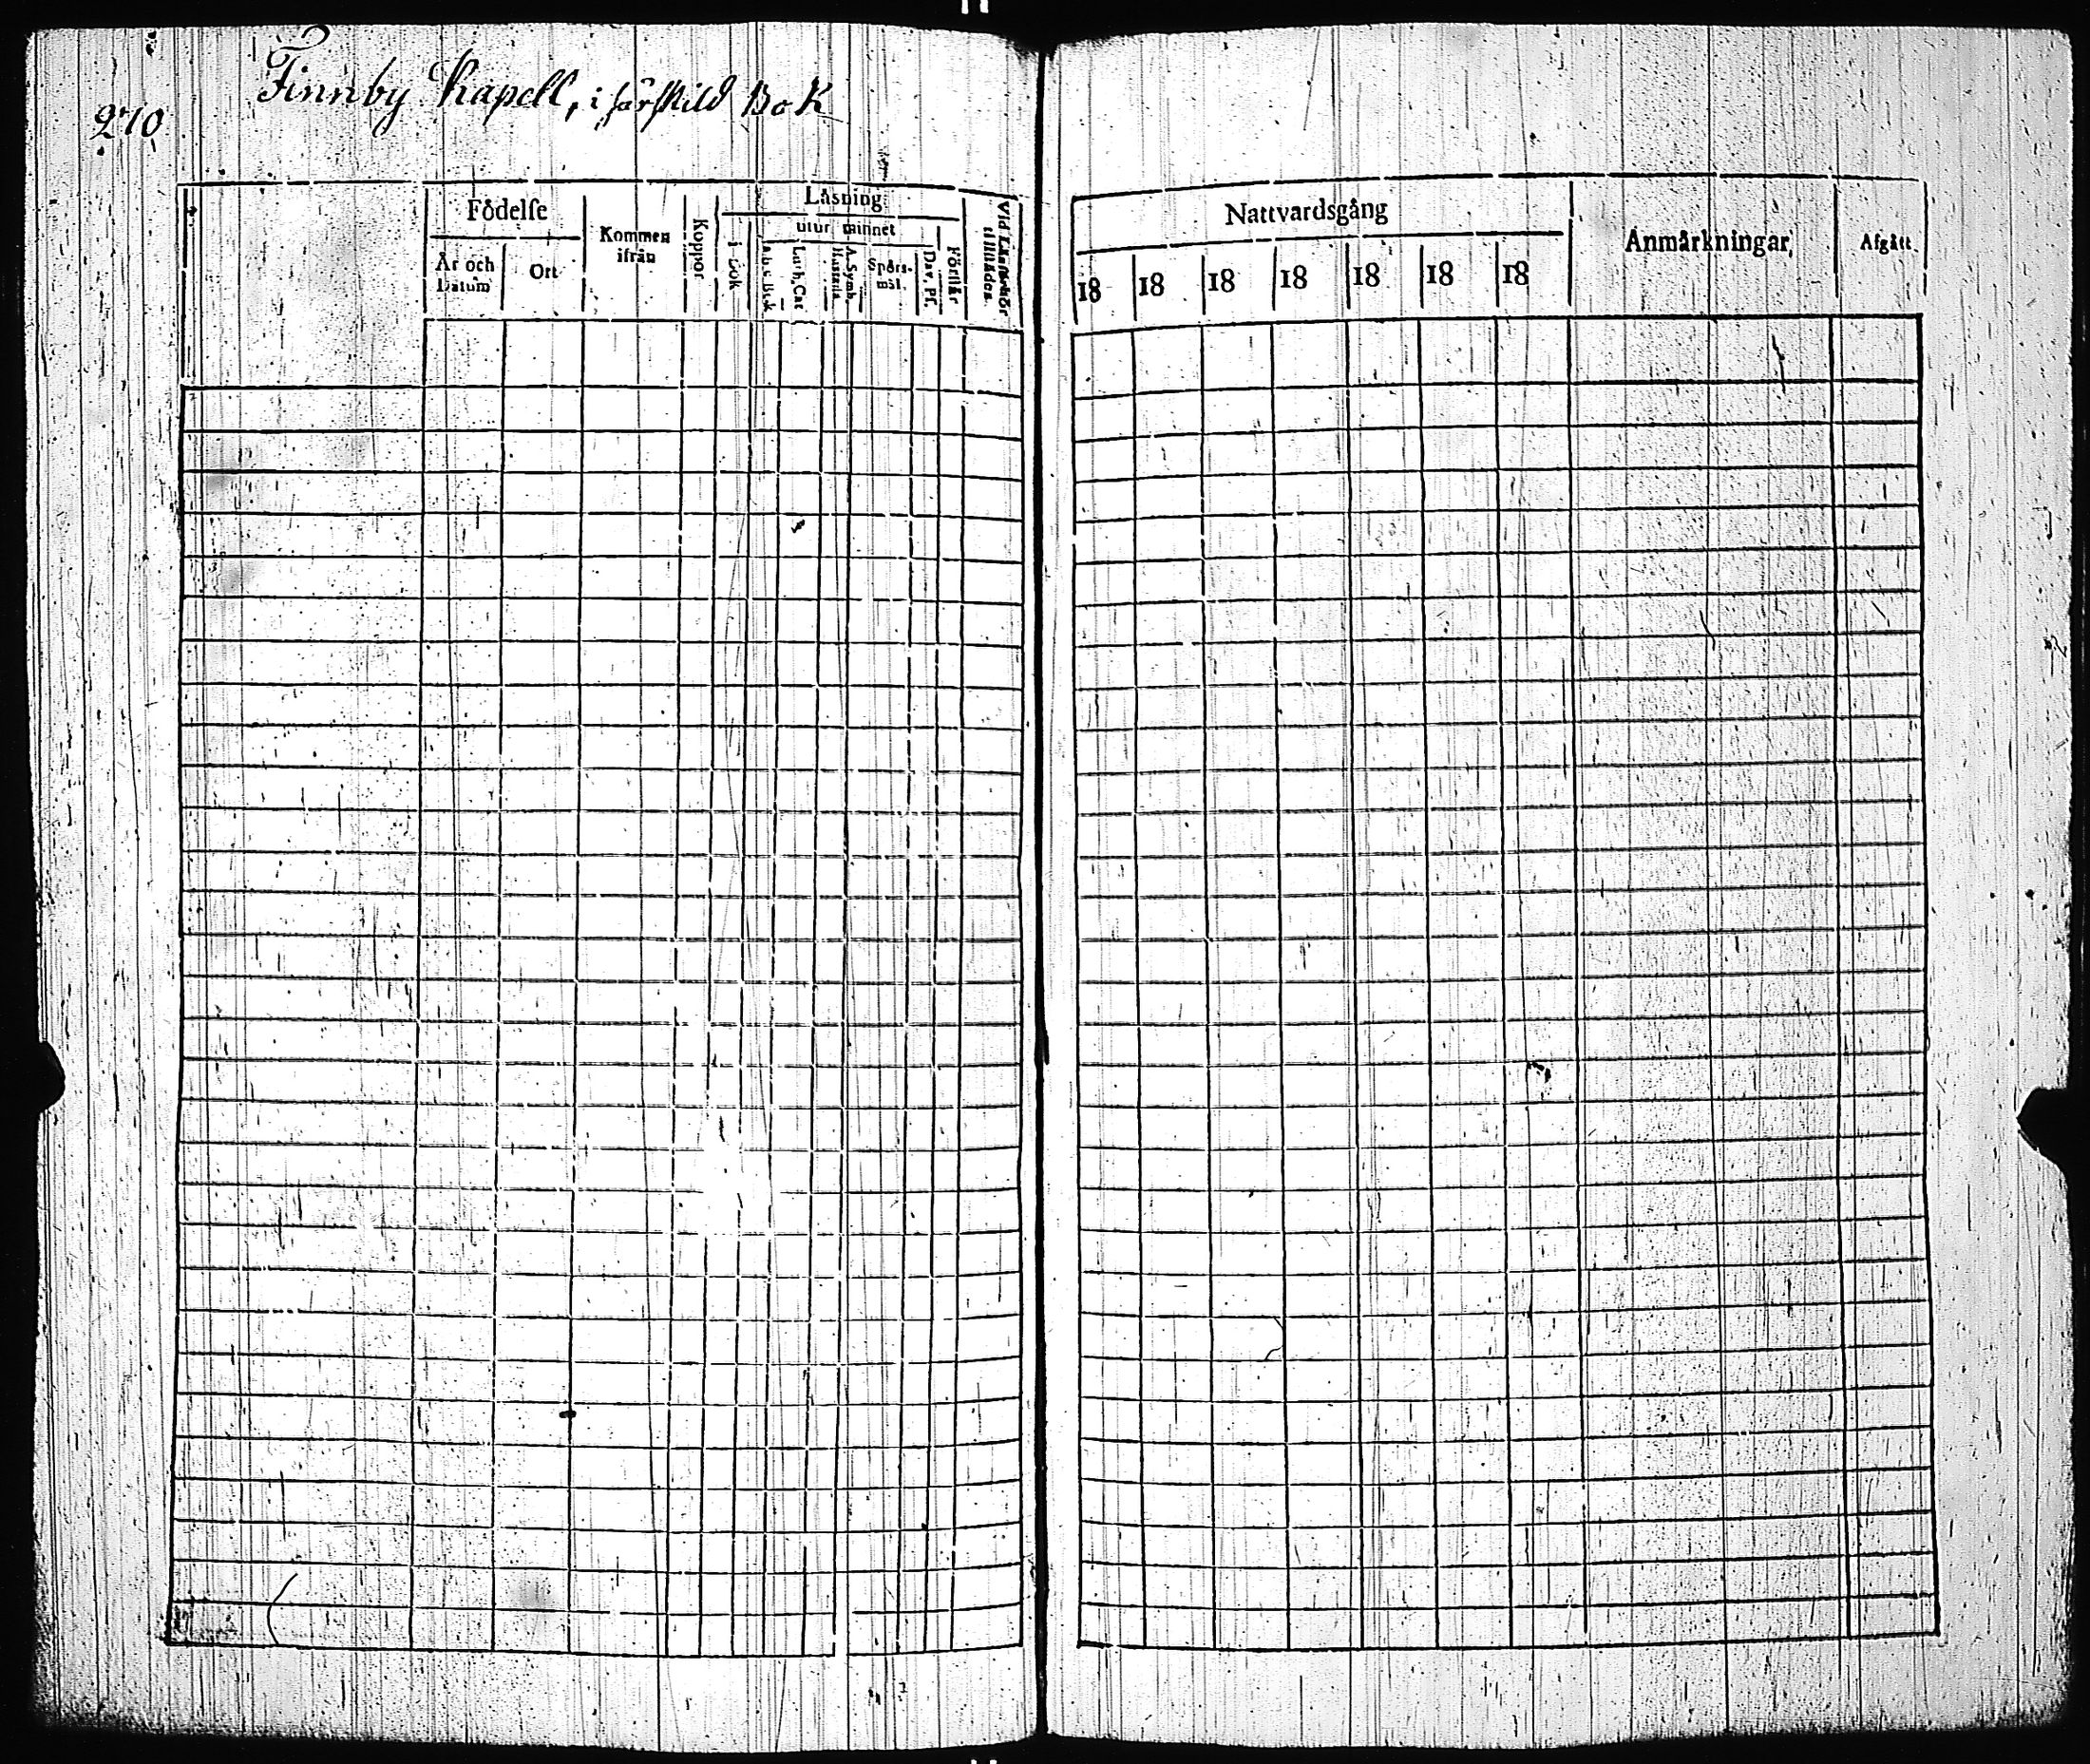 Finnby Kapell, i särskild Bok
270
Födelse
År och
Datum
Ort
Kommen
ifrån
Koppor
Läsning
utur minnet
i Bok
A.b.c. Bok
Luth. Cat
A. Symb.
Hustafla
Spörs-
mål.
Dav. Ps.
Förstår
Vid Läseförhör
tillstädes.
Nattvardsgång
18 18 18 18 18 18 18
Anmärkningar
Afgått.